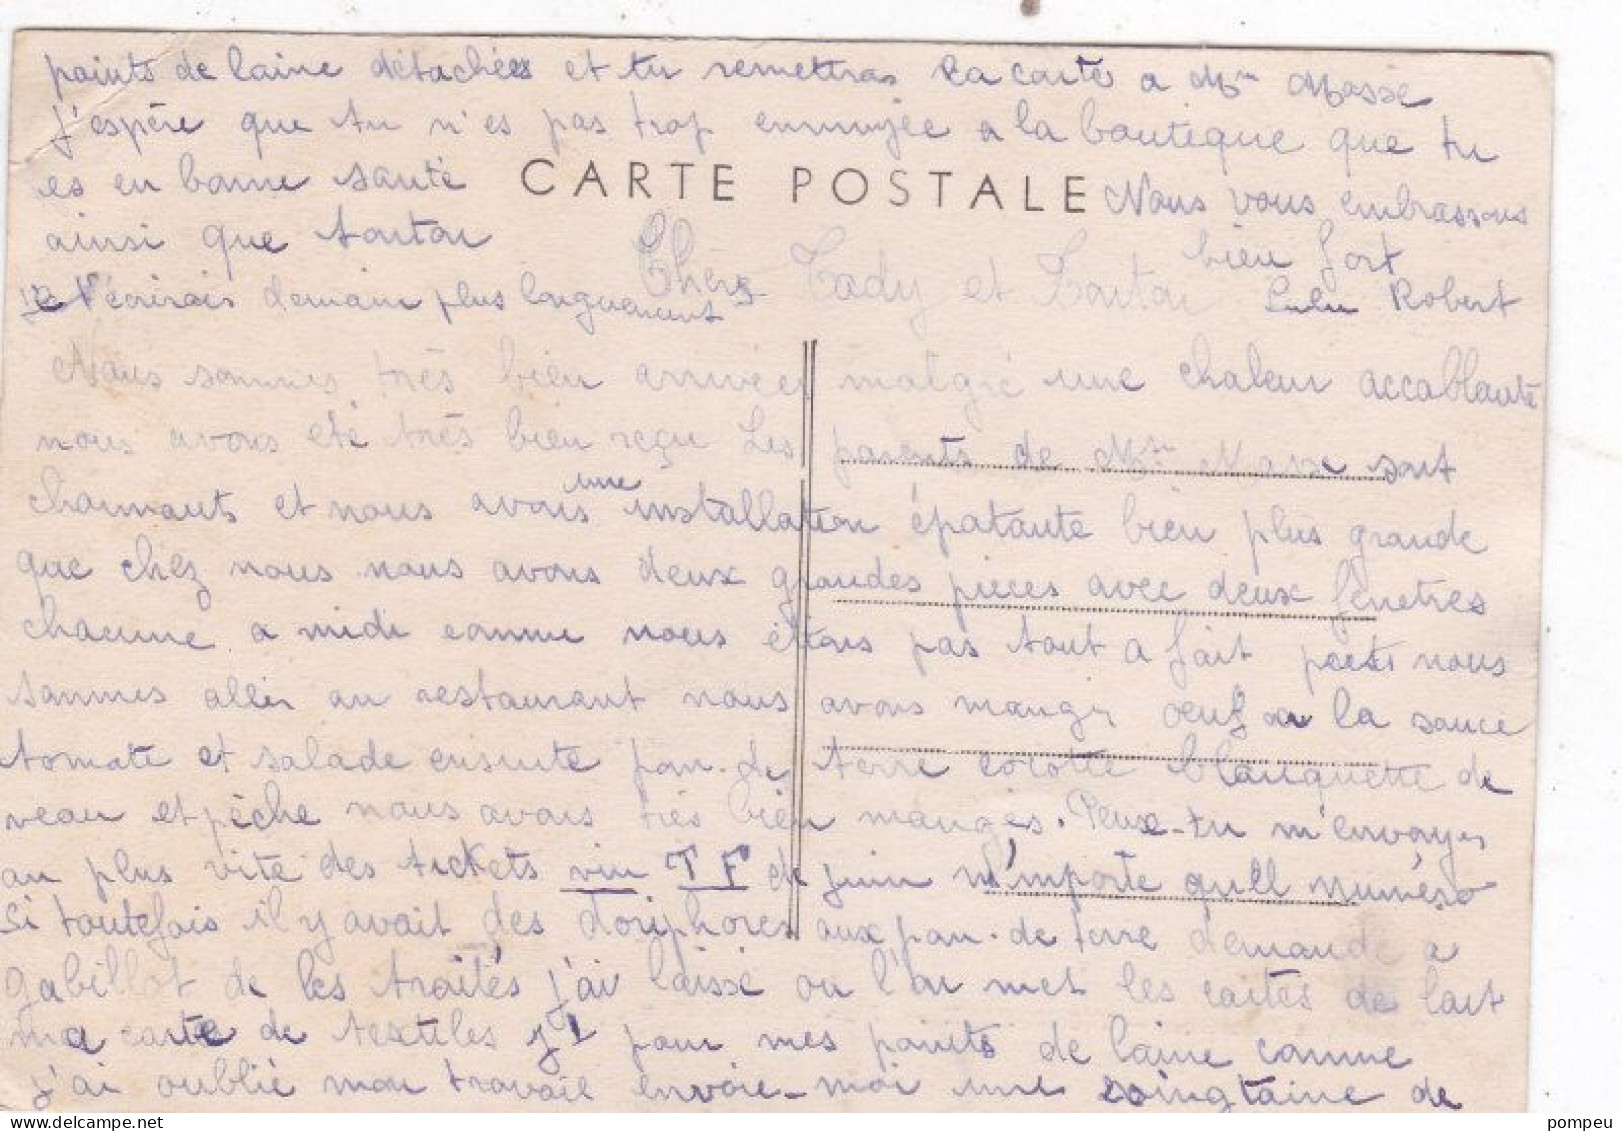 points de laine détachées et tu remettras la carte a Mme Masse
J'espère que tu n'es pas trop ennuyée a la boutique que tu
es en bonne santé
CARTE POSTALE
Nous vous embrassons
ainsi que tonton
bien fort
Lulu Robert
t'écrirais demain plus longuement
Chère Tady et Tonton
Nous sommes très bien arrivées malgré une chaleur accablante
nous avons été très bien reçu Les parents de Masse sont
charmants et nous avons une installation épatante bien plus grande
que chez nous nous avons deux grandes pieces avec deux fenetres
chacune a midi comme nous étions pas tout a fait prets nous
sommes aller au restaurant nous avons manger oeufs a la sauce
tomate et salade ensuite pom. de terre cocotte blanquette de
veau et pèche nous avons très bien mangés. Peux-tu m'envoyer
au plus vite des tickets vin T F de juin n'importe quell numéro
Si toutefois il y avait des doriphores aux pom. de terre demande a
Gabillot de les traités j'ai laissé ou l'on met les cartes de lait
ma carte de textiles J1 pour mes points de laine comme
j'ai oublié mon travail envoie-moi une vingtaine de
pompeu